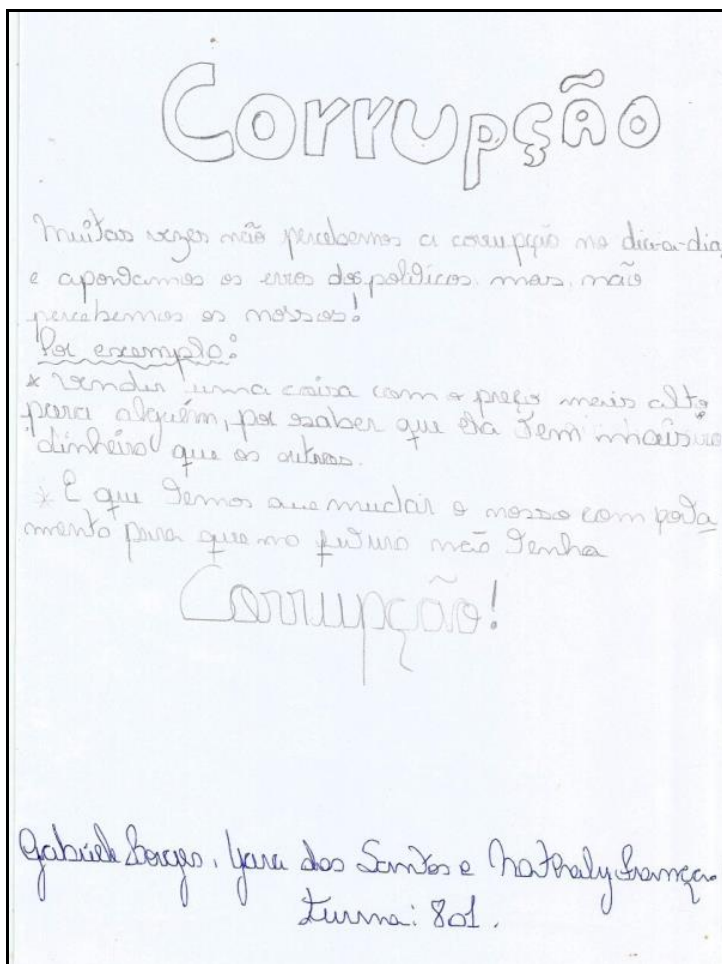 Corrupção
Muitas vezes não percebemos a corrupção no dia-a-dia,
e apontamos os erros dos politicos, mais não
percebemos os nossos!
Por exemplo:
* Vender uma coisa com o preço mais alto
para alguém, por saber que ela tem mais
dinheiro que os outros.
* E que temos que mudar o nosso comporta
mento para que no futuro não tenha
Corrupção!
Gabriele Borges, Yara dos Santos e Nathaly França.
Turma: 801.